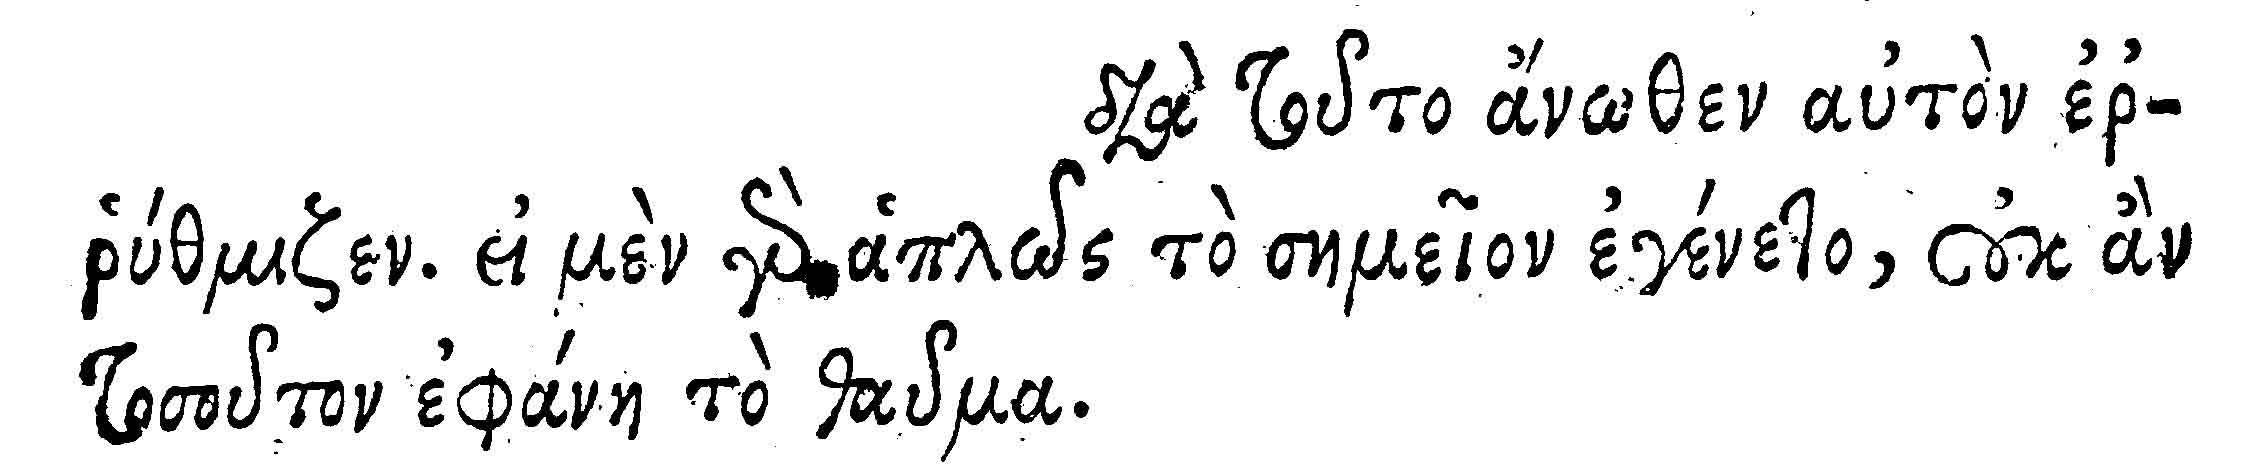 διὰ τοῦτο ἄνωθεν αὐτὸν ἐρ-
ῥύθμιζεν. εἰ μὲν γὰρ ἁπλῶς τὸ σημεῖον ἐγένετο, οὐκ ἂν
τοσοῦτον ἐφάνη τὸ θαῦμα.